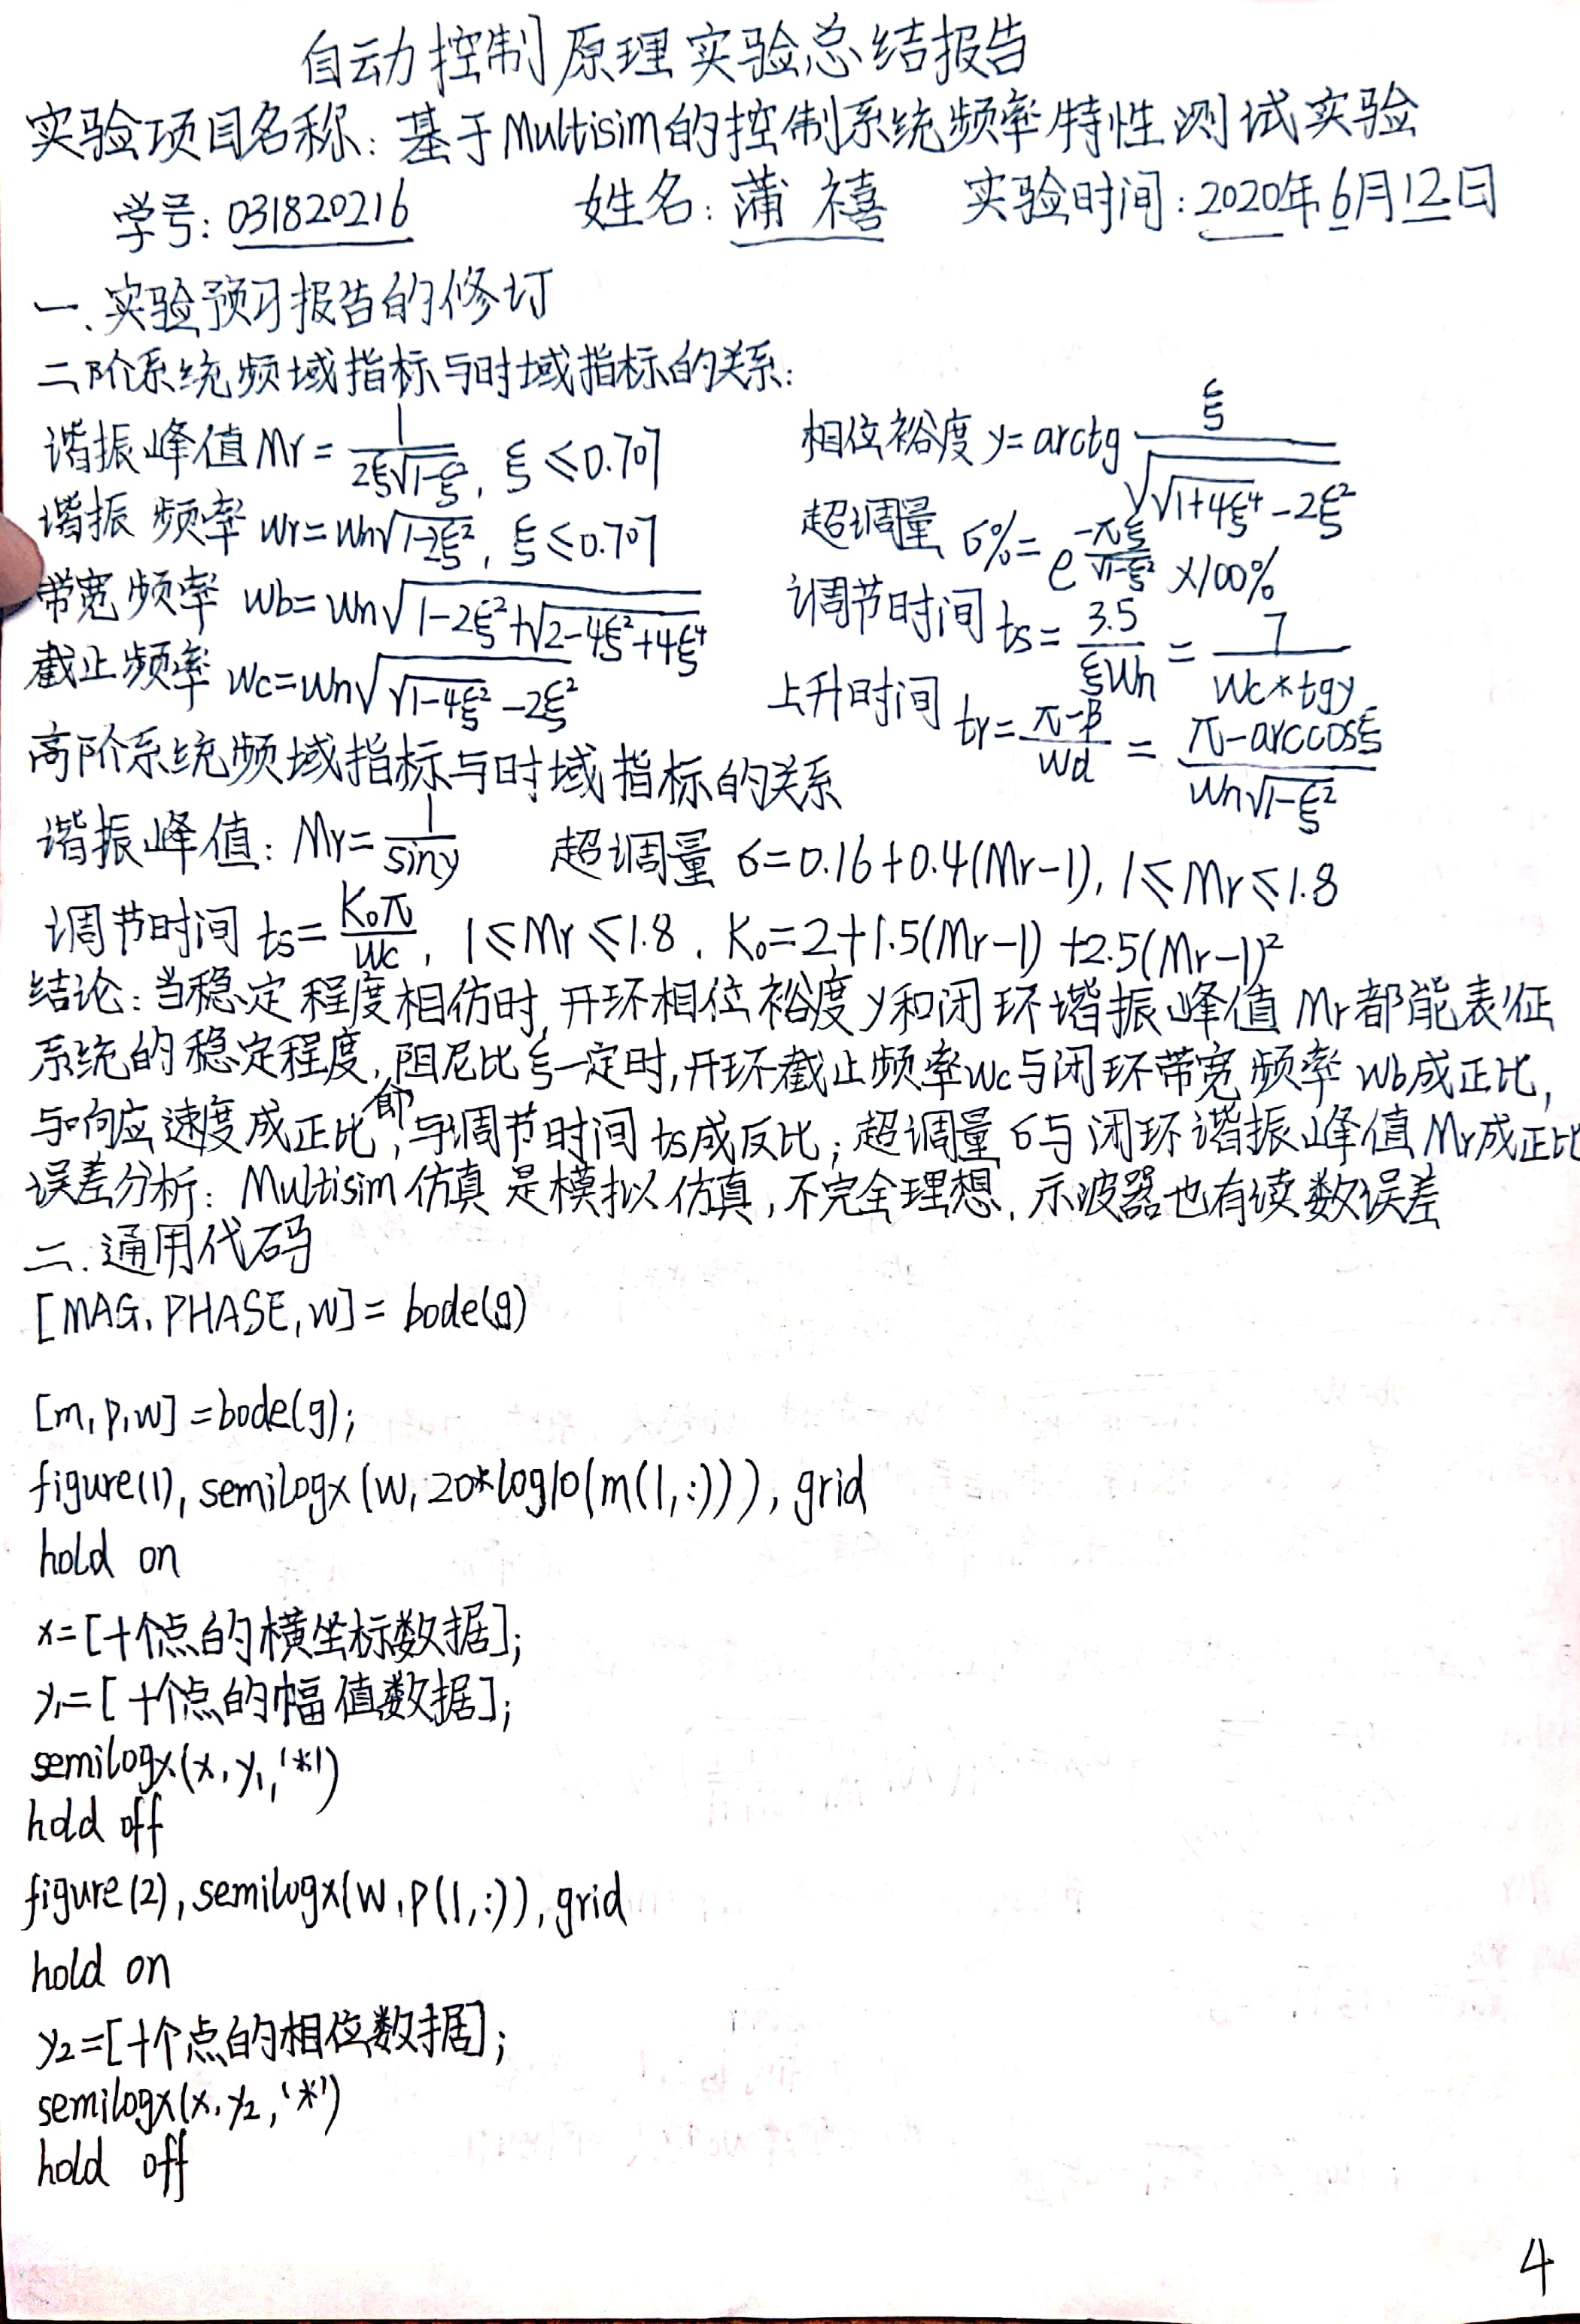 自动控制原理实验总结报告
实验项目名称：基于Multisim的控制系统频率特性测试实验
学号：031820216 姓名：蒲禧 实验时间：2020年6月12日
一、实验预习报告的修订
二阶系统频域指标与时域指标的关系：
谐振峰值 Mr=1/(2ξ√(1-ξ²)), ξ≤0.707 相位裕度 γ=arctg ξ/√(√(1+4ξ⁴)-2ξ²)
谐振频率 Wr=Wn√(1-2ξ²), ξ≤0.707 超调量 σ%=e^(-πξ/√(1-ξ²))×100%
带宽频率 Wb=Wn√(1-2ξ²+√(2-4ξ²+4ξ⁴)) 调节时间 ts=3.5/(ξWn)=7/(Wc*tgγ)
截止频率 Wc=Wn√(√(1-4ξ²)-2ξ²) 上升时间 tr=(π-β)/Wd=(π-arccosξ)/(Wn√(1-ξ²))
高阶系统频域指标与时域指标的关系
谐振峰值：Mr=1/sinγ 超调量 σ=0.16+0.4(Mr-1), 1≤Mr≤1.8
调节时间 ts=K₀π/Wc, 1≤Mr≤1.8, K₀=2+1.5(Mr-1)+2.5(Mr-1)²
结论：当稳定程度相仿时,开环相位裕度γ和闭环谐振峰值Mr都能表征
系统的稳定程度,阻尼比ξ一定时,开环截止频率Wc与闭环带宽频率Wb成正比,
与响应速度成正比,即与调节时间ts成反比；超调量σ与闭环谐振峰值Mr成正比
误差分析：Multisim仿真是模拟仿真,不完全理想,示波器也有读数误差
二.通用代码
[MAG,PHASE,W]=bode(g)
[m,p,w]=bode(g);
figure(1),semilogx(w,20*log10(m(1,:))),grid
hold on
x=[十个点的横坐标数据];
y₁=[十个点的幅值数据];
semilogx(x,y₁,'*')
hold off
figure(2),semilogx(w,p(1,:)),grid
hold on
y₂=[十个点的相位数据];
semilogx(x,y₂,'*')
hold off
4